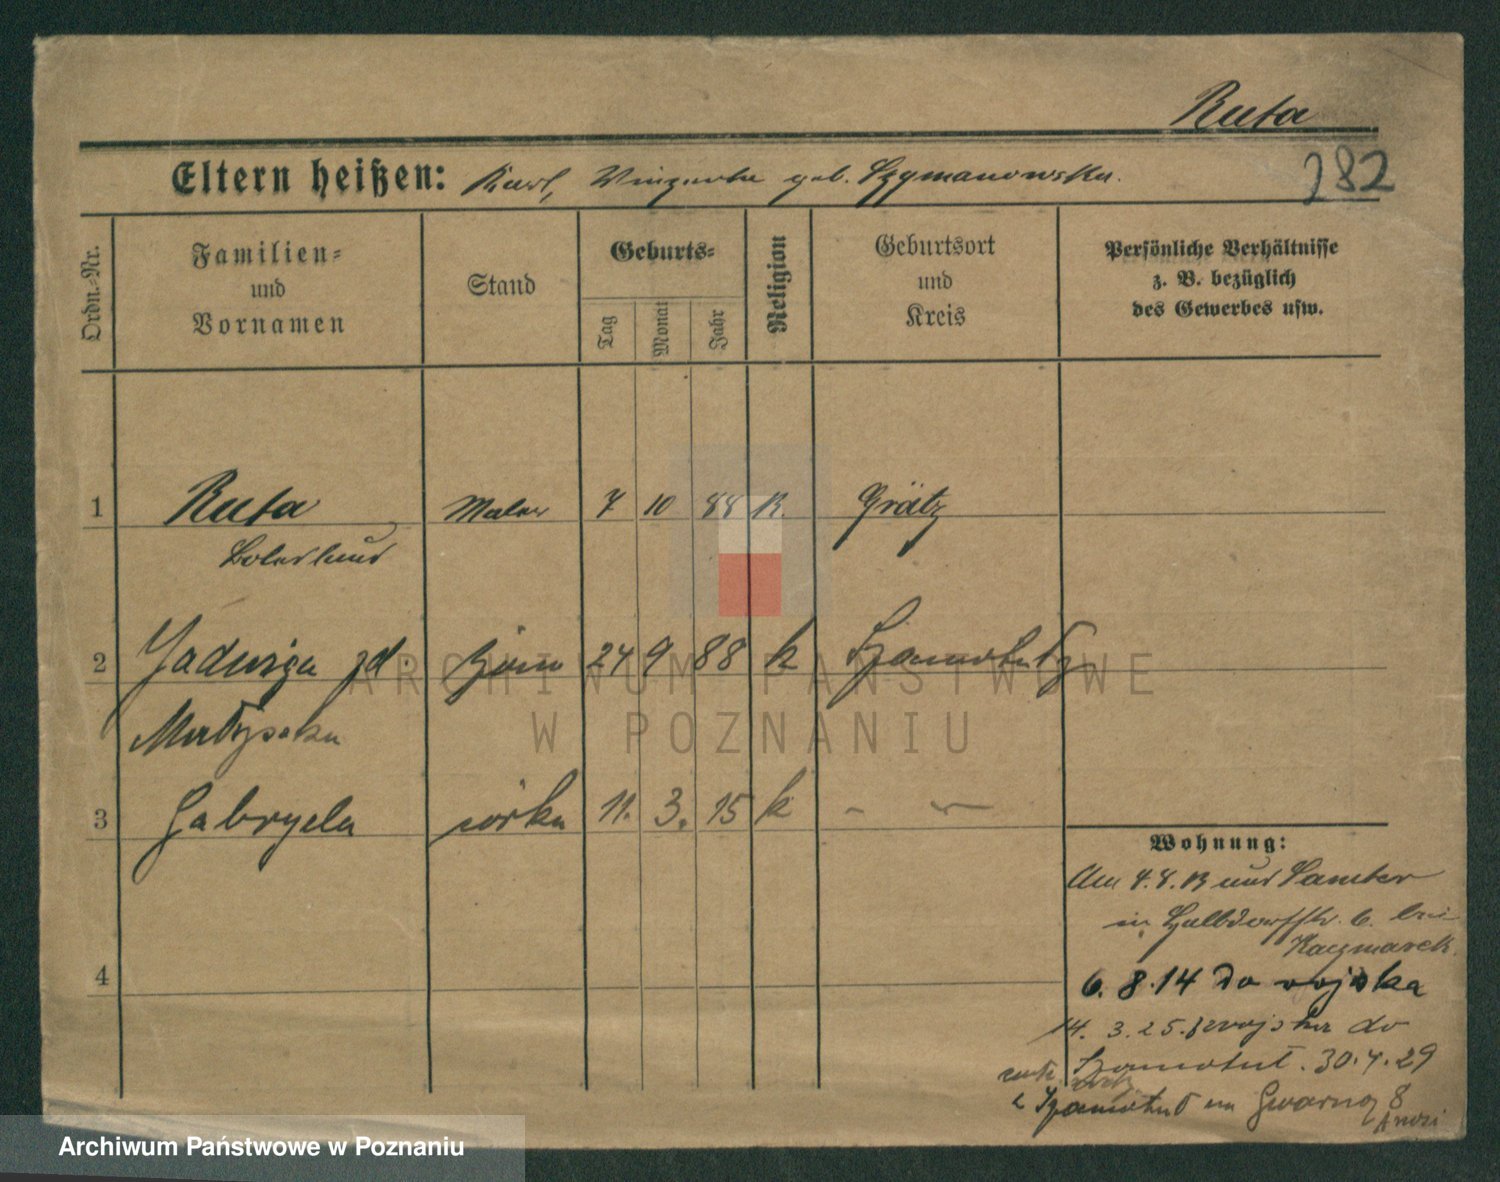 Ruta
Eltern heißen: Karl, geb. Szymanowska.
282
Ordn.-Nr.
Familien-
und
Vornamen
Stand
Geburts-
Tag
Monat
Jahr
Religion
Geburtsort
und
Kreis
Persönliche Verhältnisse
z. B. bezüglich
des Gewerbes usw.
1 Ruta Maler 7 10 88 K. Grätz
2 Jadwiga zd. żona 24 9 88 k Szamotuły
3 Gabryela córka 11. 3. 15 k - -
Wohnung:
Am 4.8.13 aus Samter
in Halbdorfstr. 6. bei
Kaczmarek.
4
6.8.14 do wojska
14. 3. 25. z wojska do
Szamotuł. 30.4.29
z Szamotuł na Gwarną 8
ARCHIWUM PAŃSTWOWE
W POZNANIU
Archiwum Państwowe w Poznaniu